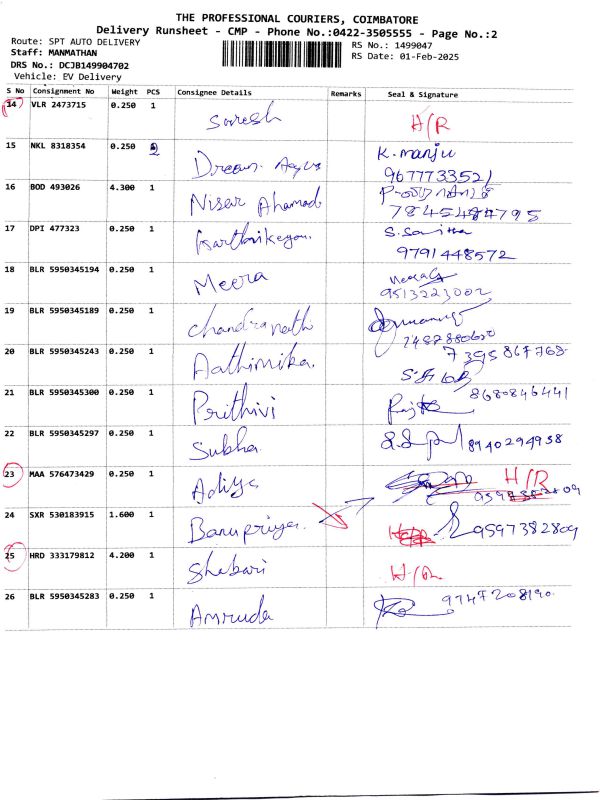 THE PROFESSIONAL COURIERS, COIMBATORE
Delivery Runsheet - CMP - Phone No.:0422-3505555 - Page No.:2
Route: SPT AUTO DELIVERY
Staff: MANMATHAN
DRS No.: DCJB149904702
Vehicle: EV Delivery
RS No.: 1499047
RS Date: 01-Feb-2025
S No Consignment No Weight PCS Consignee Details Remarks Seal & Signature
14 VLR 2473715 0.250 1 Suresh H/R
15 NKL 8318354 0.250 2 Dream K. manju
9677733521
16 BOD 493026 4.300 1 Nisar Ahamad
7845484795
17 DPI 477323 0.250 1 Karthikeyan. S. Savitha
9791448572
18 BLR 5950345194 0.250 1 Meera
9513223002
19 BLR 5950345189 0.250 1 Chandranath
20 BLR 5950345243 0.250 1 Aathimika. 7395867768
21 BLR 5950345300 0.250 1 Prithivi 8680846441
22 BLR 5950345297 0.250 1 Subha 8940294938
23 MAA 576473429 0.250 1 Adiya H/R
24 SXR 530183915 1.600 1 Banupriya. 9597382809
25 HRD 333179812 4.200 1 Shabari H/R
26 BLR 5950345283 0.250 1 Amruda 9747208190